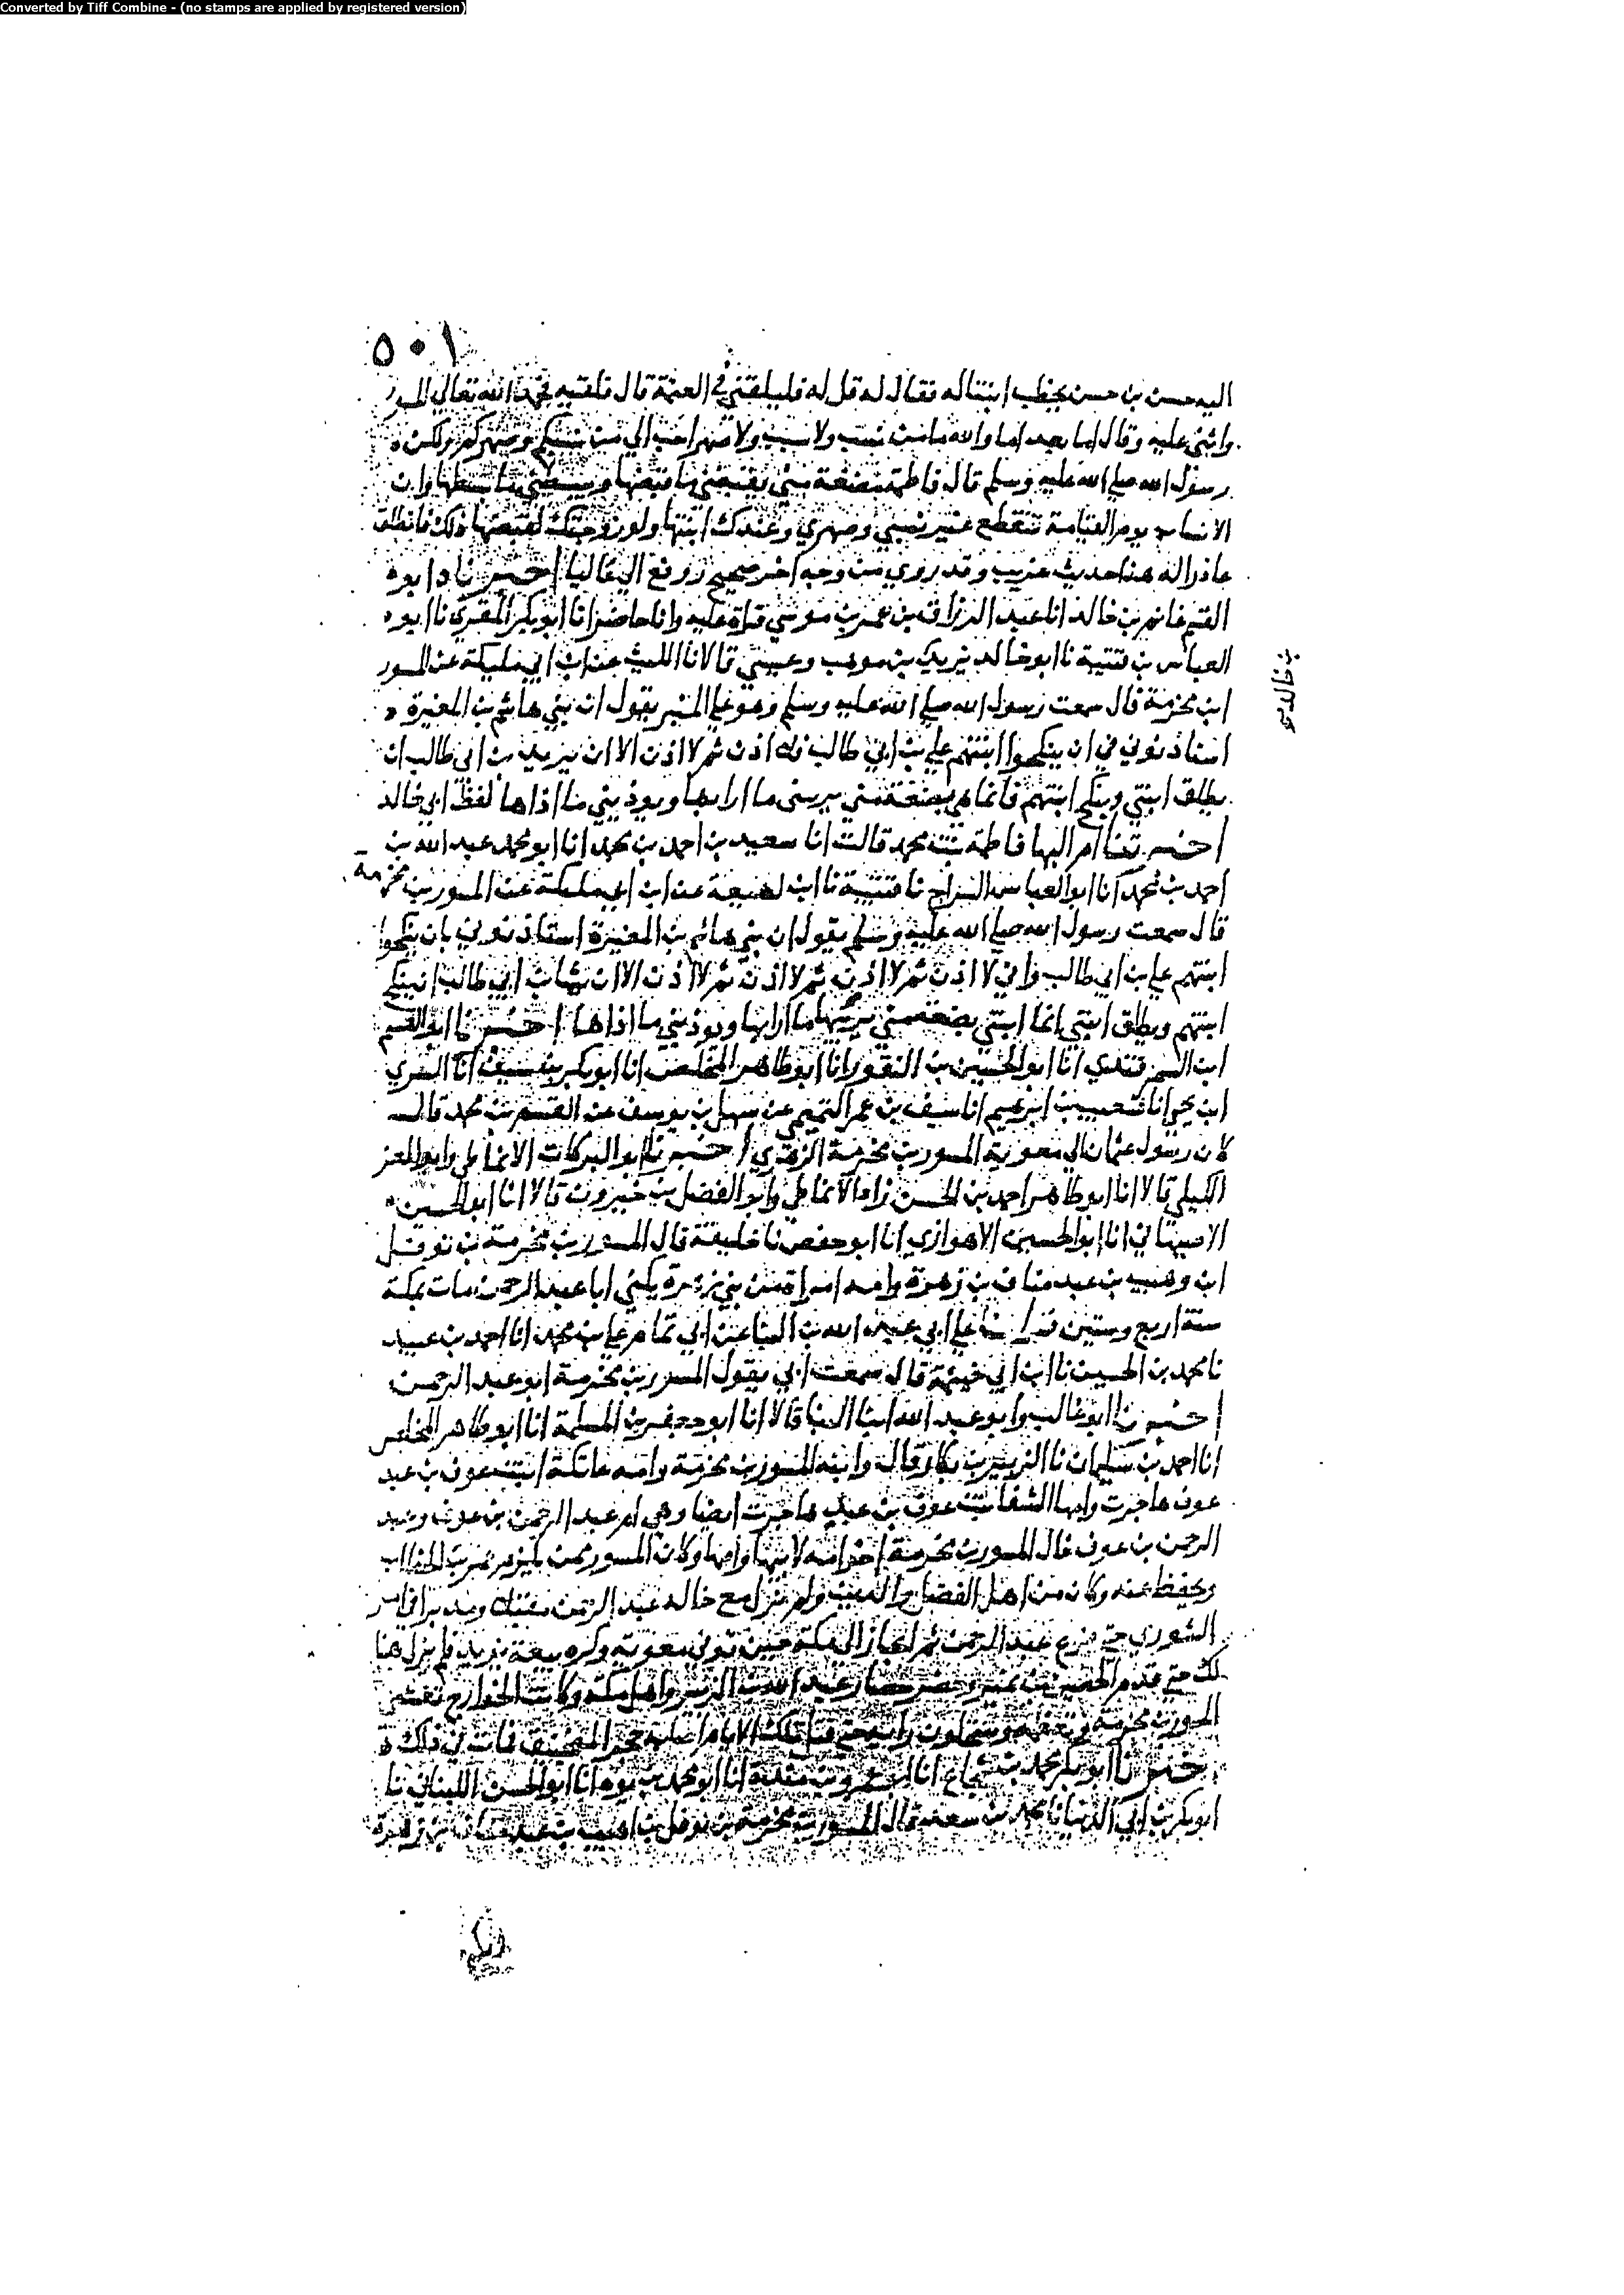 Converted by Tiff Combine - (no stamps are applied by registered version)
٥٠١
اليه حسن بن حسن يخطب ابنتاله فقال له قل له فليلقني في العتمة قال فلقيه فحمد الله تعالي المسور
واثني عليه وقال اما بعد اما والله ما من نسب ولا سبب ولا صهر احب الي من نسبكم وصهركم ولكن
رسول الله صلي الله عليه وسلم قال فاطمة مضغة مني يقبضني ما قبضها ويبسطني ما بسطها وان
الانساب يوم القيامة تنقطع غير نسبي وصهري وعندك ابنتها ولو زوجتك لقبضها ذلك فانطلق
عاذرا له هذا حديث غريب وقد يروي من وجه اخر صحيح وقع الي عاليا اخبرناه ابو
القسم غانم بن خالد انا عبد الرزاق بن عمر بن موسي قراة عليه وانا حاضر انا ابو بكر المقري نا ابو
العباس بن قتيبة نا ابو خالد يزيد بن موهب وعيسي قالا نا الليث عن ابن ابي مليكة عن المسور
بن خالد
ابن مخرمة قال سمعت رسول الله صلي الله عليه وسلم وهو علي المنبر يقول ان بني هاشم بن المغيرة
استاذنوني في ان ينكحوا ابنتهم علي بن ابي طالب فلا اذن ثم لا اذن الا ان يريد بن ابي طالب ان
يطلق ابنتي وينكح ابنتهم فانما هي بضعة مني يريبني ما ارابها ويوذيني ما اذاها لفظ ابي خالد
اخبرتنا ام البها فاطمة بنت محمد قالت انا سعيد بن احمد بن محمد انا ابو محمد عبد الله بن
احمد بن محمد انا ابو العباس السراج نا قتيبة نا ابن لهيعة عن ابن ابي مليكة عن المسور بن مخرمة
قال سمعت رسول الله صلي الله عليه وسلم يقول ان بني هاشم بن المغيرة استاذنوني بان ينكحوا
ابنتهم علي بن ابي طالب واني لا اذن ثم لا اذن ثم لا اذن ثم لا اذن الا ان يشا بن ابي طالب ان ينكح
ابنتهم ويطلق ابنتي انما ابنتي بضعة مني يريبها ما ارابها ويوذيني ما اذاها اخبرنا ابو القسم
ابن السمرقندي انا ابو الحسين بن النقور انا ابو طاهر المخلص انا ابو بكر بن سيف انا السري
ابن يحيي انا شعيب بن ابرهيم انا سيف بن عمر التميمي عن سهل بن يوسف عن القسم بن محمد قال
كان رسول عثمان الي معوية المسور بن مخرمة الزهري اخبرنا ابو البركات الانماطي وابو العز
الكيلي قالا انا ابو طاهر احمد بن الحسن زاد الانماطي وابو الفضل بن خيرون قالا انا ابو الحسين
الاصبهاني انا ابو الحسين الاهوازي انا ابو حفص نا خليفة قال المسور بن مخرمة بن نوفل
ابن وهيب بن عبد مناف بن زهرة وامه امراة من بني زهرة يكني ابا عبد الرحمن مات بمكة
سنة اربع وستين قرات علي ابي عبد الله بن البنا عن ابي تمام علي بن محمد انا احمد بن عبيد
نا محمد بن الحسين نا ابن ابي خيثمة قال سمعت ابي يقول المسور بن مخرمة ابو عبد الرحمن
اخبرنا ابو غالب وابو عبد الله ابنا البنا قالا انا ابو جعفر بن المسلمة انا ابو طاهر المخلص
انا احمد بن سليمان نا الزبير بن بكار قال وابنه المسور بن مخرمة وامه عاتكة ابنت عوف بن عبد
عوف هاجرت وامها الشفا بنت عوف بن عبد هاجرت ايضا وهي ام عبد الرحمن بن عوف وعبد
الرحمن بن عوف خال المسور بن مخرمة اخو امه لابيها وامها وكان المسور ممن يلزم عمر بن الخطاب
ويحفظ عنه وكان من اهل الفضل والدين ولم يزل مع خاله عبد الرحمن مقبلا ومدبرا في امر
الشوري حتي فرغ عبد الرحمن ثم انحاز الي مكة حين توفي معوية وكره بيعة يزيد فلم يزل هنا
لك حتي قدم الحصين بن نمير وحضر حصار عبد الله بن الزبير واهل مكة وكانت الخوارج تغشي
المسور بن مخرمة وتعظمه وينتحلون رايه حتي قتل تلك الايام اصابه حجر المنجنيق فمات من ذلك
اخبرنا ابو بكر محمد بن شجاع انا ابو عمرو بن مندة انا ابو محمد بن يوه انا ابو الحسن اللبناني نا
ابو بكر بن ابي الدنيا نا محمد بن سعد قال المسور بن مخرمة بن نوفل بن اهيب بن عبد مناف بن زهرة